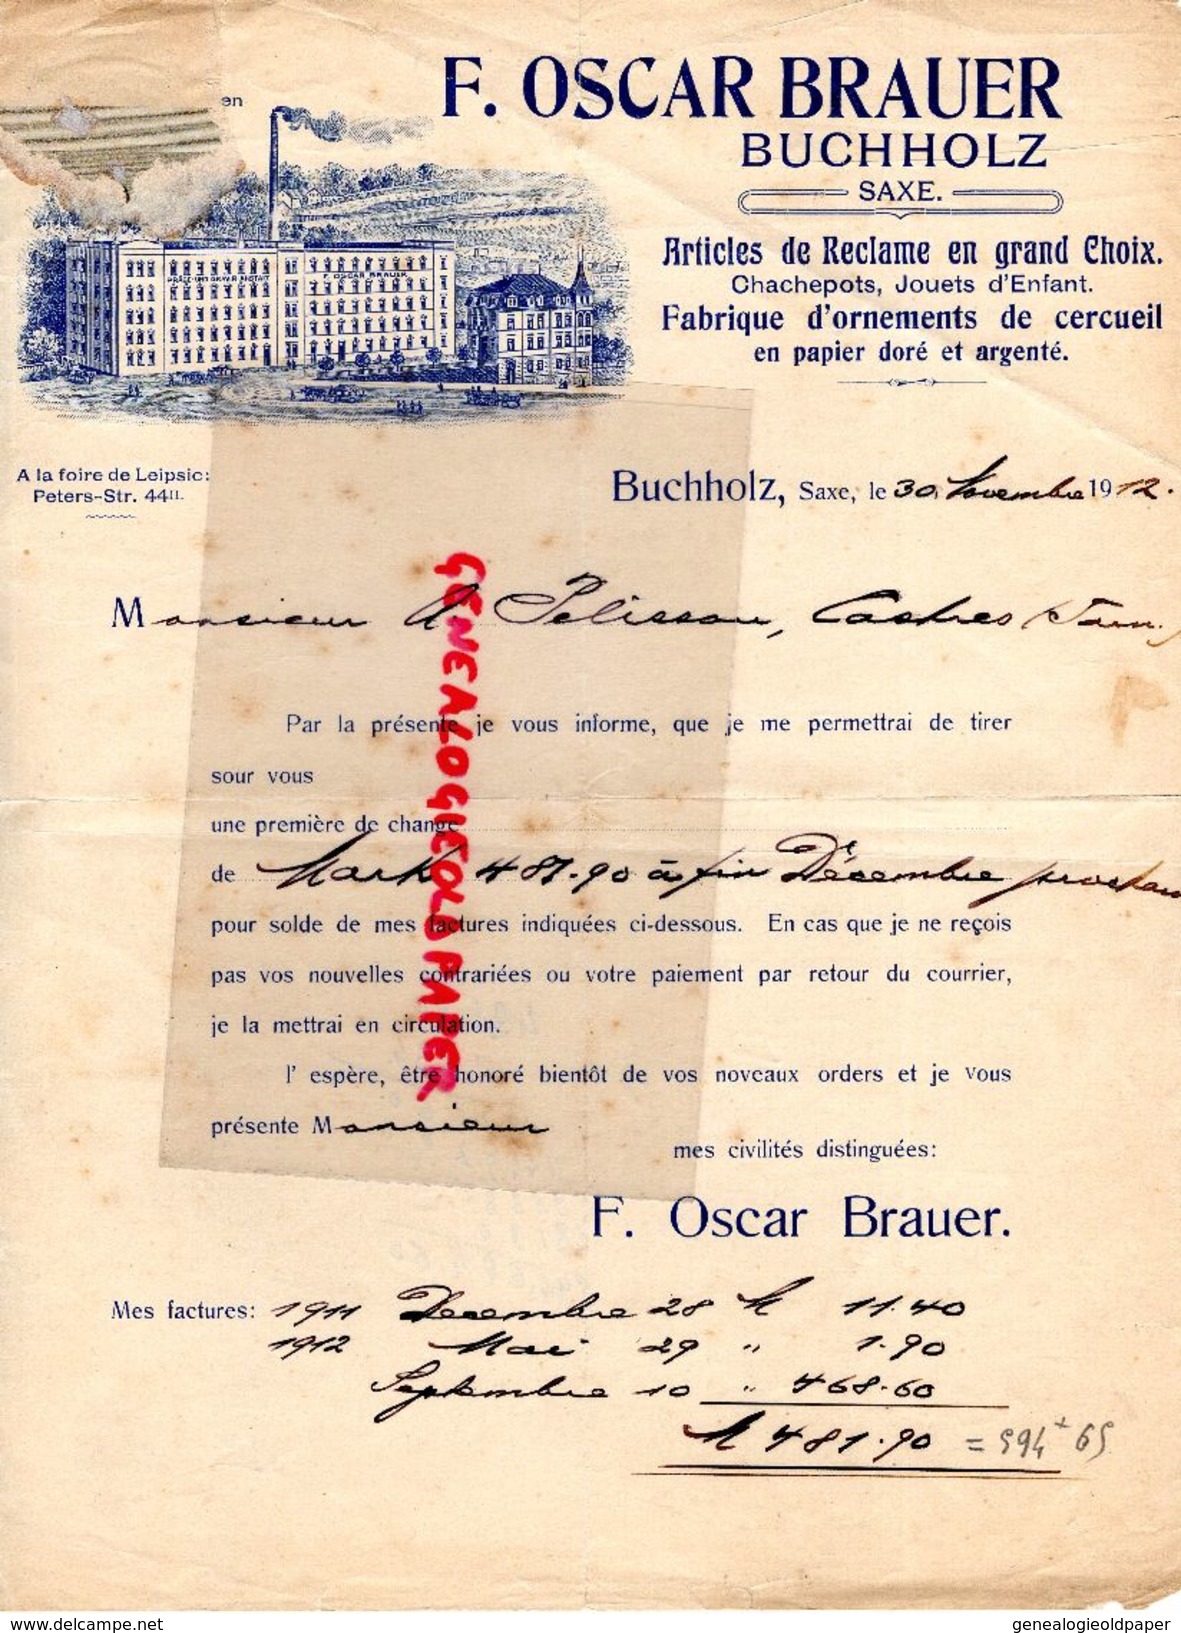 en
F. OSCAR BRAUER
BUCHHOLZ
SAXE.
Articles de Reclame en grand Choix.
Chachepots, Jouets d'Enfant.
Fabrique d'ornements de cercueil
en papier doré et argenté.
F. OSCAR BRAUER
A la foire de Leipsic:
Peters-Str. 44II.
Buchholz, Saxe, le 30. Novembre 1912.
Monsieur A. Pelissou, Castres (Tarn.)
Par la présente je vous informe, que je me permettrai de tirer
sour vous
une première de change
de Mark 481.90 à fin Décembre prochain
pour solde de mes factures indiquées ci-dessous. En cas que je ne reçois
pas vos nouvelles contrariées ou votre paiement par retour du courrier,
je la mettrai en circulation.
l' espère, être honoré bientôt de vos noveaux orders et je vous
présente Monsieur
mes civilités distinguées:
F. Oscar Brauer.
Mes factures: 1911 Decembre 28 M 11.40
1912 Mai 29 " 1.90
Septembre 10 " 468.60
M 481.90 = 594 + 65
GENEALOGIEOLDPAPER
www.delcampe.net
genealogieoldpaper